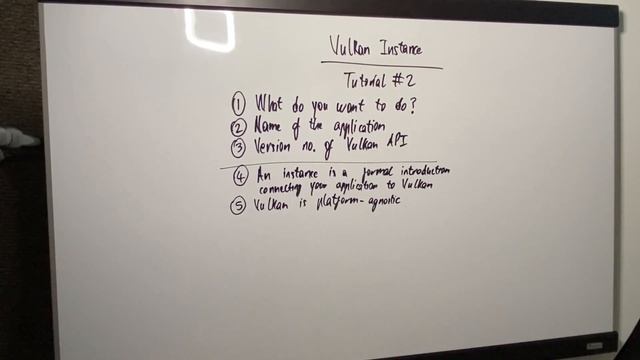 Vulkan Instance
Tutorial #2
① What do you want to do?
② Name of the application
③ Version no. of Vulkan API
④ An instance is a formal introduction
connecting your application to Vulkan
⑤ Vulkan is platform-agnostic